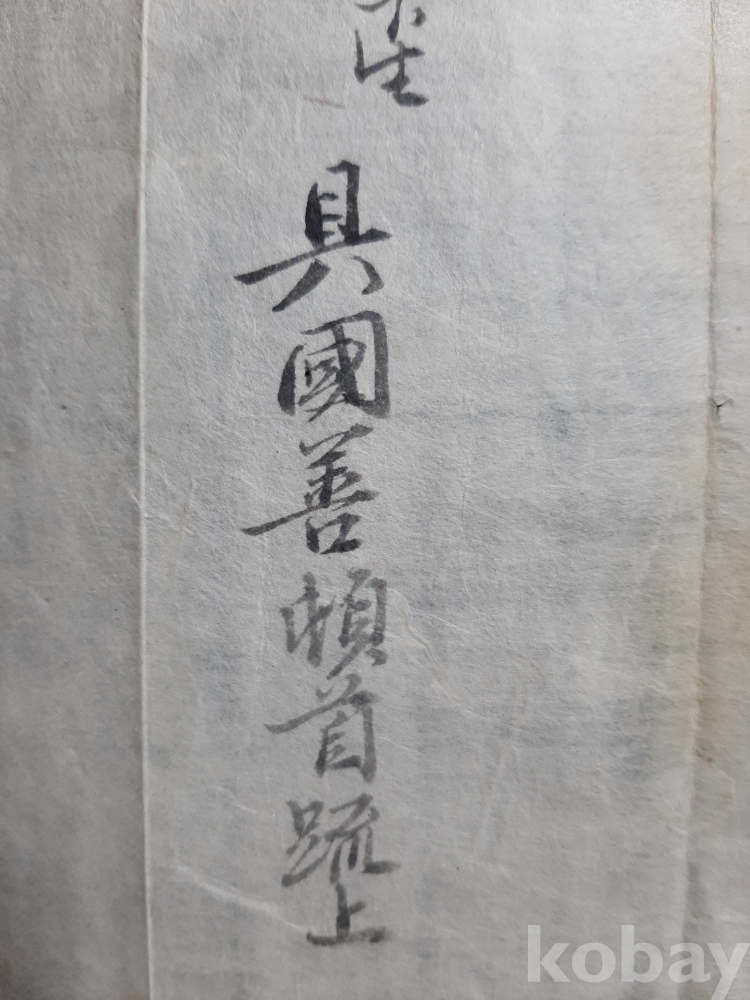 具國善頓首䟽上
kobay